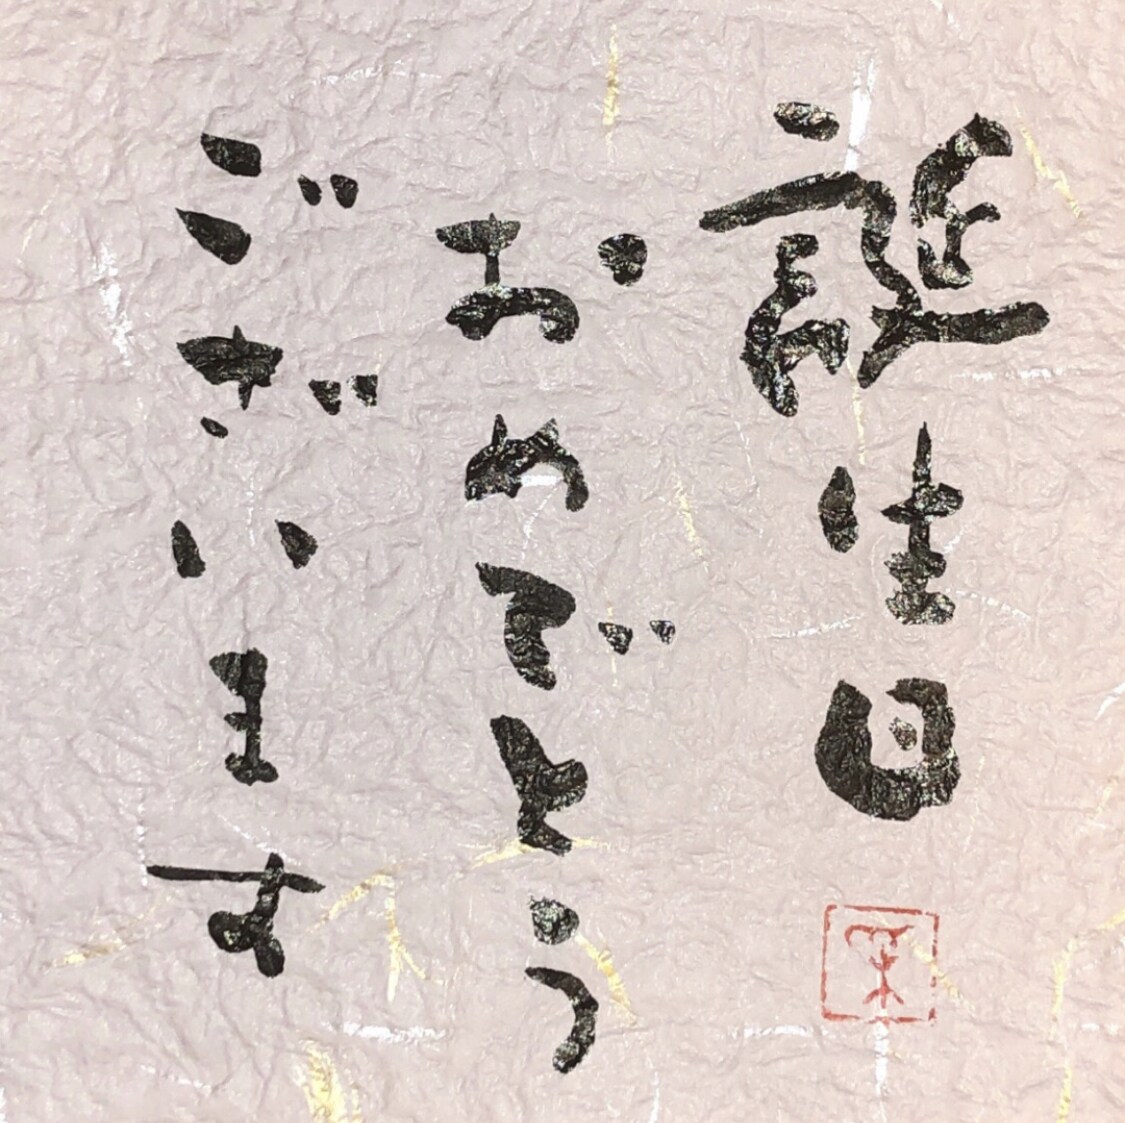 誕生日
おめでとう
ございます